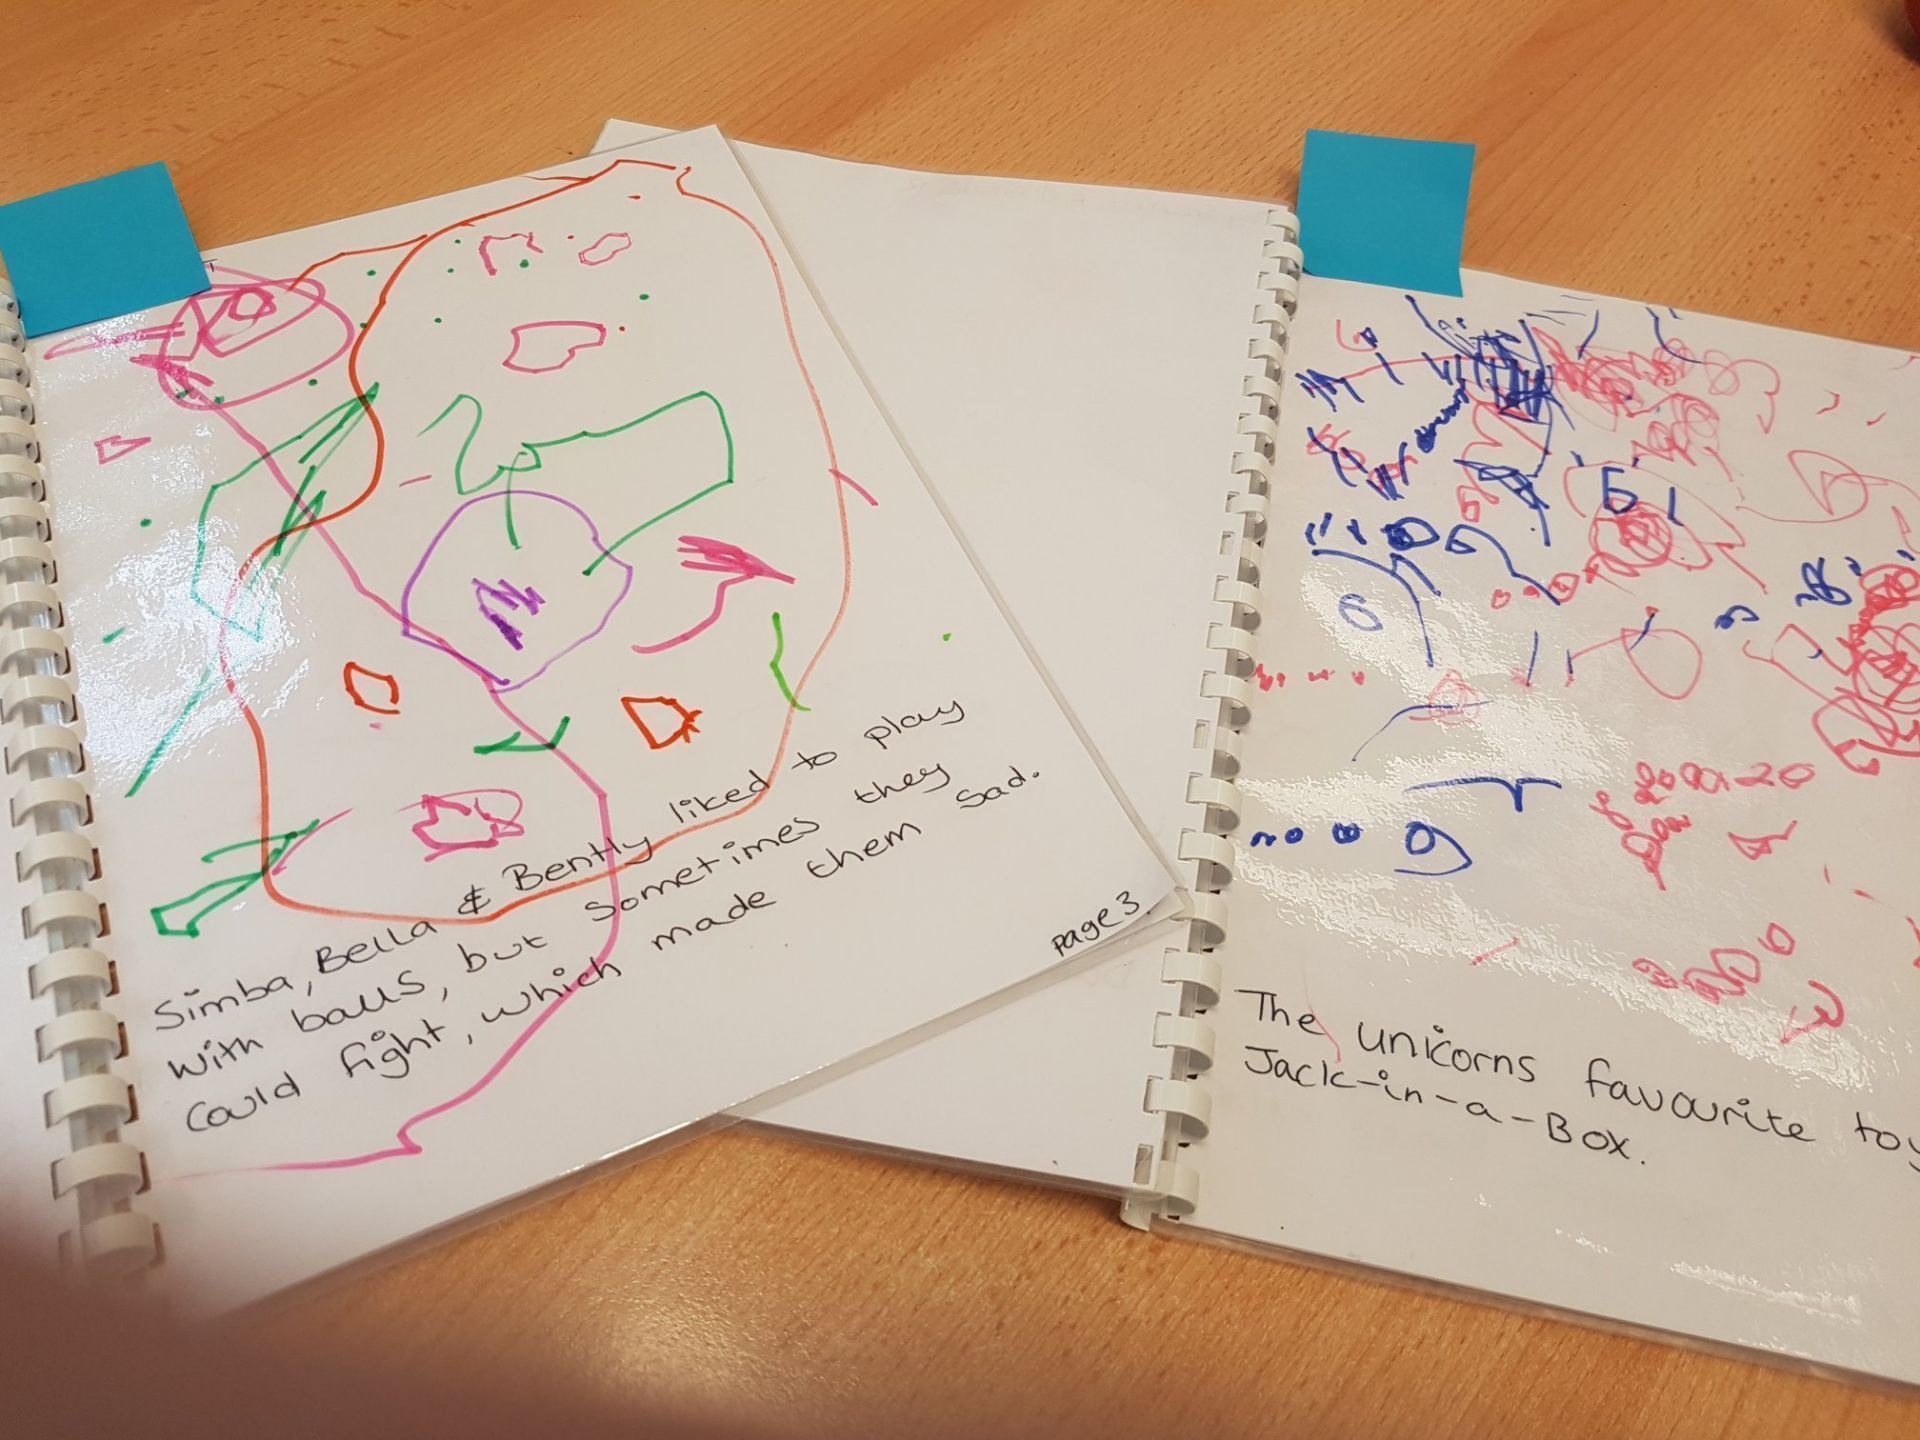 Simba, Bella & Bently liked to play
with balls, but sometimes they
could fight, which made them sad.
page 3.
The unicorns favourite toy
Jack-in-a-Box.